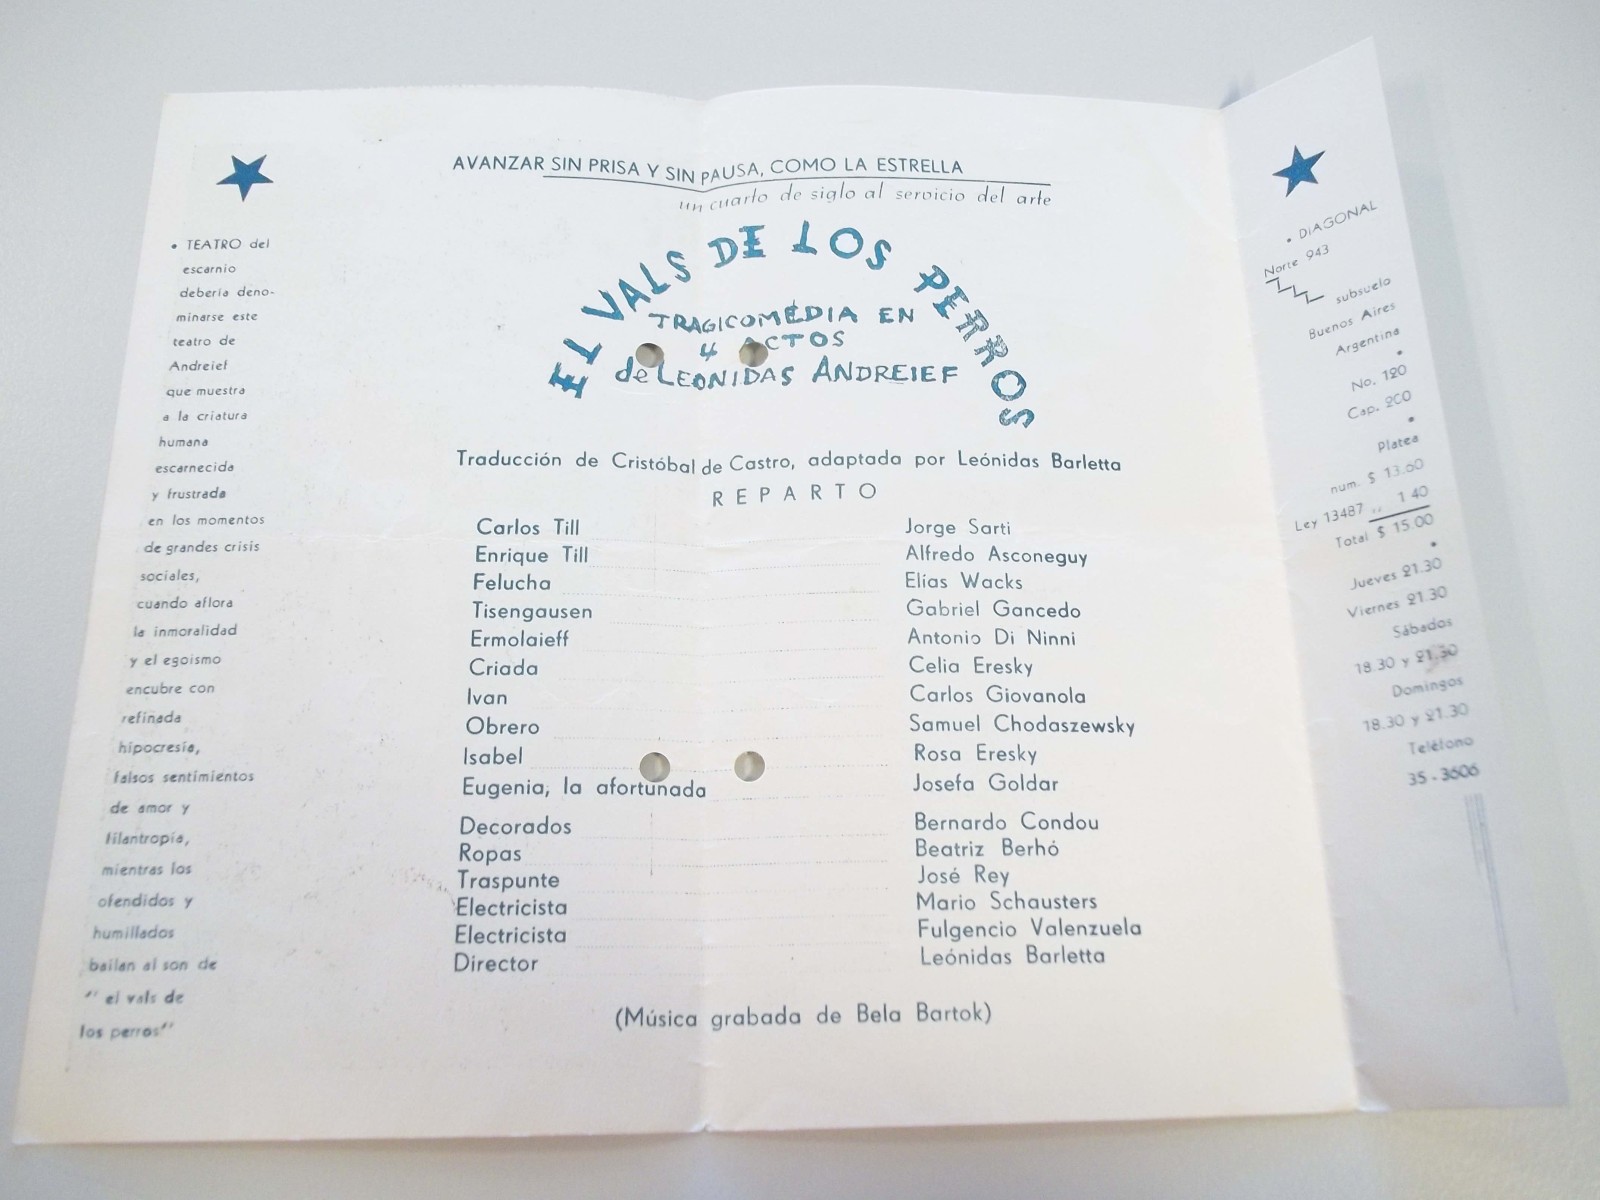 AVANZAR SIN PRISA Y SIN PAUSA, COMO LA ESTRELLA
un cuarto de siglo al servicio del arte
EL VALS DE LOS PERROS
TRAGICOMÉDIA EN
4 ACTOS
de LEONIDAS ANDREIEF
Traducción de Cristóbal de Castro, adaptada por Leónidas Barletta
REPARTO
Carlos Till Jorge Sarti
Enrique Till Alfredo Asconeguy
Felucha Elías Wacks
Tisengausen Gabriel Gancedo
Ermolaieff Antonio Di Ninni
Criada Celia Eresky
Ivan Carlos Giovanola
Obrero Samuel Chodaszewsky
Isabel Rosa Eresky
Eugenia, la afortunada Josefa Goldar
Decorados Bernardo Condou
Ropas Beatriz Berhó
Traspunte José Rey
Electricista Mario Schausters
Electricista Fulgencio Valenzuela
Director Leónidas Barletta
(Música grabada de Bela Bartok)
• TEATRO del
escarnio
debería deno-
minarse este
teatro de
Andreief
que muestra
a la criatura
humana
escarnecida
y frustrada
en los momentos
de grandes crisis
sociales,
cuando aflora
la inmoralidad
y el egoismo
encubre con
refinada
hipocresía,
falsos sentimientos
de amor y
filantropía,
mientras los
ofendidos y
humillados
bailan al son de
"el vals de
los perros"
• DIAGONAL
Norte 943
subsuelo
Buenos Aires
Argentina
•
No. 120
Cap. 200
•
Platea
num. $ 13.60
Ley 13487 ,, 1 40
Total $ 15.00
•
Jueves 21.30
Viernes 21.30
Sábados
18.30 y 21.30
Domingos
18.30 y 21.30
Teléfono
35-3606